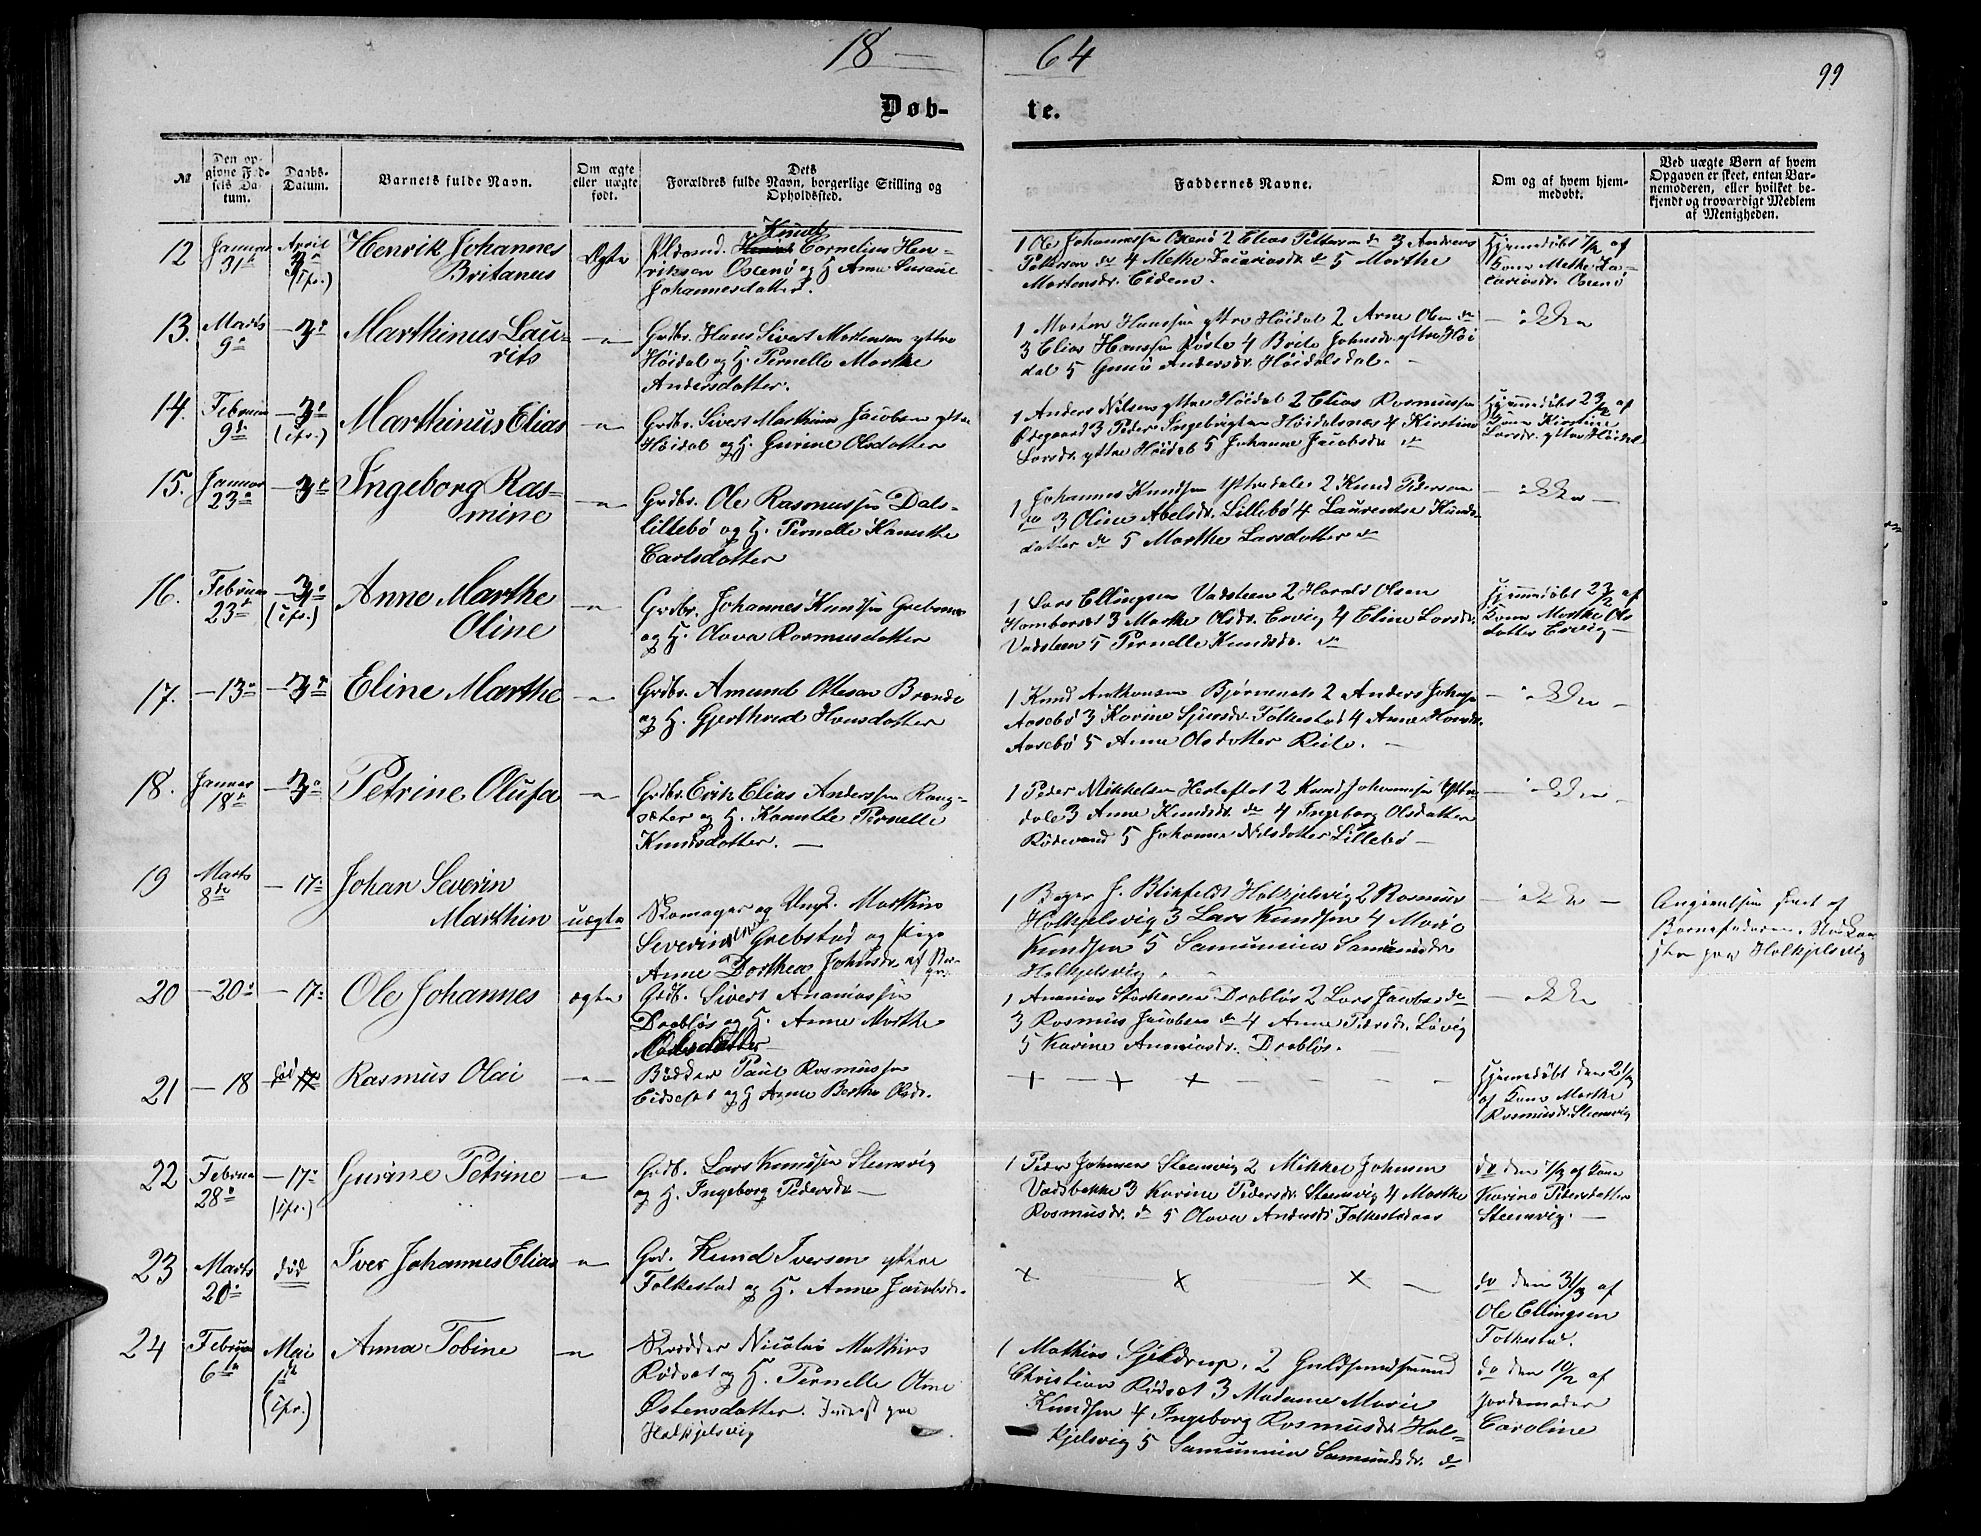 18 — 64
99
Døb- te.
№
Den opgivne Fødsels Datum.
Daabs-Datum.
Barnets fulde Navn.
Om ægte eller uægte født.
Dets Forældres fulde Navn, borgerlige Stilling og Opholdssted.
Faddernes Navne.
Om og af hvem hjemmedøbt.
Ved uægte Børn af hvem Opgaven er skeet, enten Barnemoderen, eller hvilket bekjendt og troværdigt Medlem af Menigheden.
12 Januar 31te April 3die
Henrik Johannes
Britanus
Ægte
Knud
Cornelius Hen-
riksen Osenø og H. Anne Susane
Johannesdatter.
1 Ole Johannessen Osenø 2 Elias Pettersen do 3 Andreas
Pettersen do 4 Methe do 5 Marthe
Martensdr. Eidem.
Hjemmedøbt 7/2 af
Kone Methe Za-
cariasdr. Osenø
13. Marts 9de — 3die
Marthinus Lau-
rits
— " —
Grdbr. Hans Sivert Mortensen yttre
Høidal og H. Pernelle Marthe
Andersdatter.
1 Morten Hanssen yttre Høidal 2 Arne Olsen do
3 Elias Hanssen 4 Brite Johnsdr. yttre Høi
dal 5 Andersdr. Høidalsdal.
— ikke
14. Februar 9de — 3die
Marthinus Elias
— " —
Grdbr. Sivert Marthin Jacobsen yttre
Høidal og H. Gurine Olsdatter
1 Anders Nilsen yttre Høidal 2 Elias Rasmussen
Ødegaard 3 Peder Ingebrigtsen Høidalsnæs 4 Kirstine
Larsdr. yttre Høidal 5 Johanne Jacobsdr. do
Hjemmedøbt 23/2 af
Kone Kirstine
Larsdr. yttre Høidal
15. Januar 23de — 3die
Ingeborg Ras-
mine
— " —
Grdbr. Ole Rasmussen Dals-
lillebø og H. Pernelle Kanutte
Carlsdatter
1 Johannes Knudsen Yttredale 2 Knud Pedersen
do 3 Oline Abelsdr. Lillebø 4 Laurentse Knuds-
datter do 5 Marthe Larsdatter do
— ikke —
16. Februar 23de — 3die
Anne Marthe
Oline
— " —
Grdbr. Johannes Knudsen
og H. Olova Rasmusdatter
1 Lars Ellingsen Vadsteen 2 Harald Olsen
Hamberset 3 Marthe Olsdr. Ervig 4 Eline Larsdr.
Vadsteen 5 Pernelle Knudsdr. do
Hjemmedøbt 23/2 af
Kone Marthe Ols
datter Ervig —
17. — 13de — 3die
Eline Marthe
— " —
Grdbr. Amund Ottesen Brende
og H. Gjerthrud Hansdatter
1 Knud Anthonsen Bjørnenak 2 Anders Johnsen
Aasebø 3 Karine Sjursdr. Folkestad 4 Anne Hansdr.
Aasebø 5 Anne Olsdatter Reite.
— ikke —
18. Januar 18de — 3die
Petrine Olufa
— " —
Grdbr. Erik Elias Anderssen Rang-
sæter og H. Kanutte Pernelle
Knudsdatter. —
1 Peder Mikkelsen Hesteflot 2 Knud Johannessen Yttre-
dale 3 Anne Knudsdr. do 4 Ingeborg Olsdatter
Rødevand 5 Johanne Nilsdatter Lillebø —
— ikke —
19 Marts 8de — 17de
Johan Severin
Marthin
uægte
Skomager og Ungk. Marthin
Severinsen Grebstad og Pige
Anne Dorthea Johnsdr. af
1 Bager J. Blikfeldt Holkjelsvig 2 Rasmus
Holkjelsvig 3 Lars Knudsen 4 Marie
Knudsen 5 Samunnia Samundsdr.
Holkjelsvig.
— ikke —
Angivelsen skeet af
Barnefaderen,
paa Holkjelsvig
20 — 20de — 17de
Ole Johannes
ægte
Grdb. Sivert Ananiassen
Drabløs og H. Anne Marthe
1 Ananias Drabløs 2 Lars Jacobsen do
3 Rasmus Jacobsen do 4 Anne Pedersdr. Løvig
5 Karine Ananiasdr. Drabløs.
— ikke
21 — 18 død
Rasmus Olai
— " —
Bødker Paul Rasmussen
Eidset og H. Anne Berthe Olsdr.
+ — + × — — — —
Hjemmedøbt den 21/3
af Kone Marthe
Rasmusdr. Steensvig
22 Februar 28de — 17de
Gurine Petrine
— " —
Grdb. Lars Knudsen Steensvig
og H. Ingeborg Pedersdr. —
1 Peder Johnsen Steensvig 2 Mikkel Johnsen
Vadsbakke 3 Karine Pedersdr. Steensvig 4 Marthe
Rasmusdr. do 5 Olova Andersdr. Folkestadaas
do den 1/3 af Kone
Karine Pedersdatter
Steensvig. —
23 Marts 20de død
Iver Johannes Elias
— " —
Grd. Knud Iversen yttre
Folkestad og H. Anne Jacobsdr.
× × — × —
do den 31/3 af
Ole Ellingsen
Folkestad.
24 Februar 6te Mai 1ste
Anna Tobine
— " —
Skrædder Nicolai Mathias
Rødset og H. Pernelle Oline
Østensdatter. Inderst paa
Holkjelsvig
1 Mathias Sjeldrup, 2 Guldsmedsvend
Christian Rødset 3 Madame Marie
Knudsen 4 Ingeborg Rasmusdr. Hol-
kjelsvig 5 Samunnia Samundsdr. do
do den 10/2 af
Jordemoder
Caroline